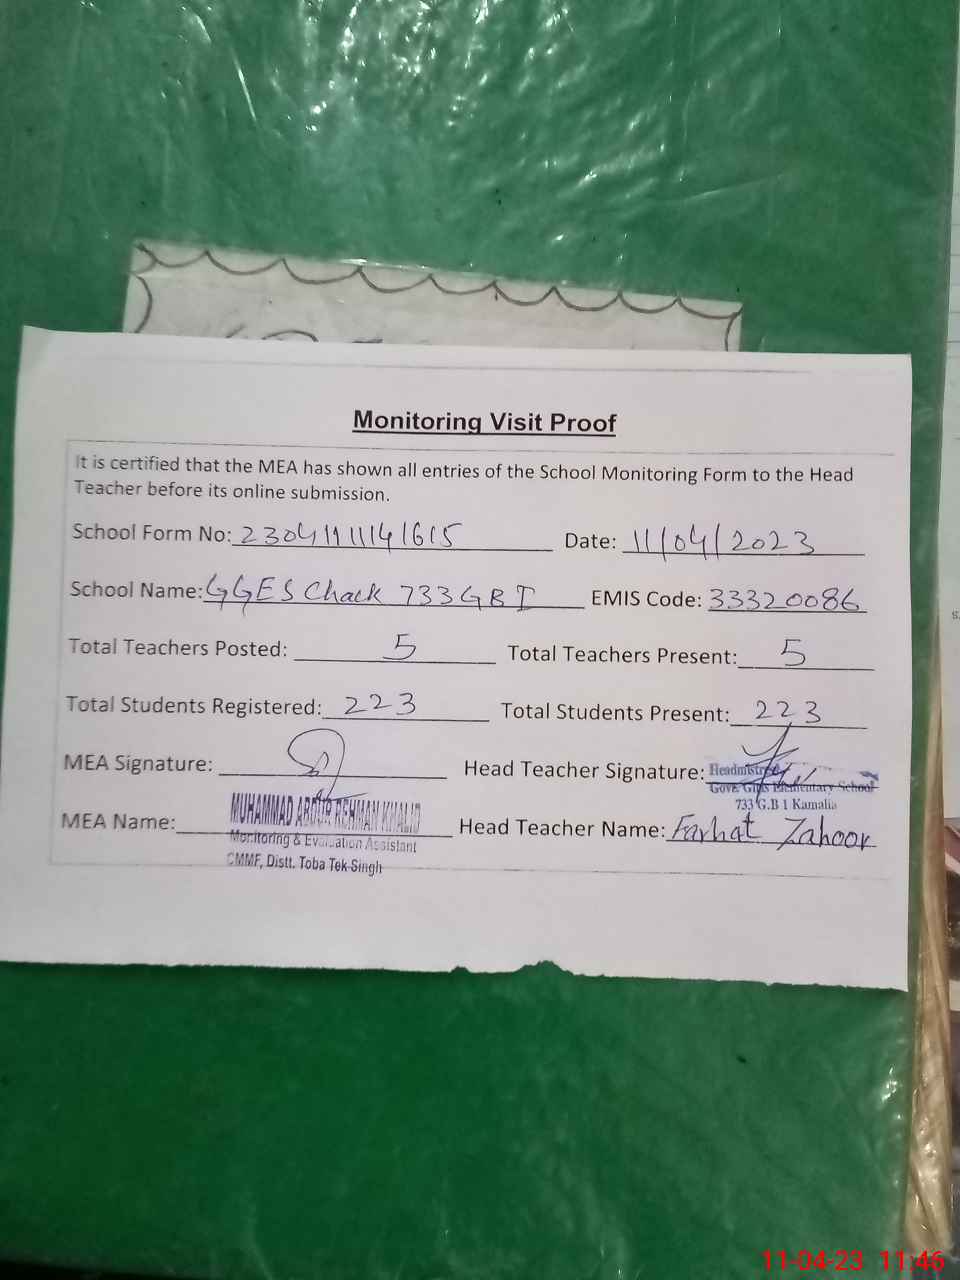 Monitoring Visit Proof
It is certified that the MEA has shown all entries of the School Monitoring Form to the Head
Teacher before its online submission.
School Form No: 23041111141615 Date: 11/04/2023
School Name: GGES Chack 733 GB I EMIS Code: 33320086
Total Teachers Posted: 5 Total Teachers Present: 5
Total Students Registered: 223 Total Students Present: 223
MEA Signature: Head Teacher Signature:
Headmistress
Govt. Girls Elementary School
733 G.B 1 Kamalia
MEA Name: MUHAMMAD ABDUR REHMAN KHALID Head Teacher Name: Farhat Zahoor
Monitoring & Evaluation Assistant
CMMF, Distt. Toba Tek Singh
11-04-23 11:46